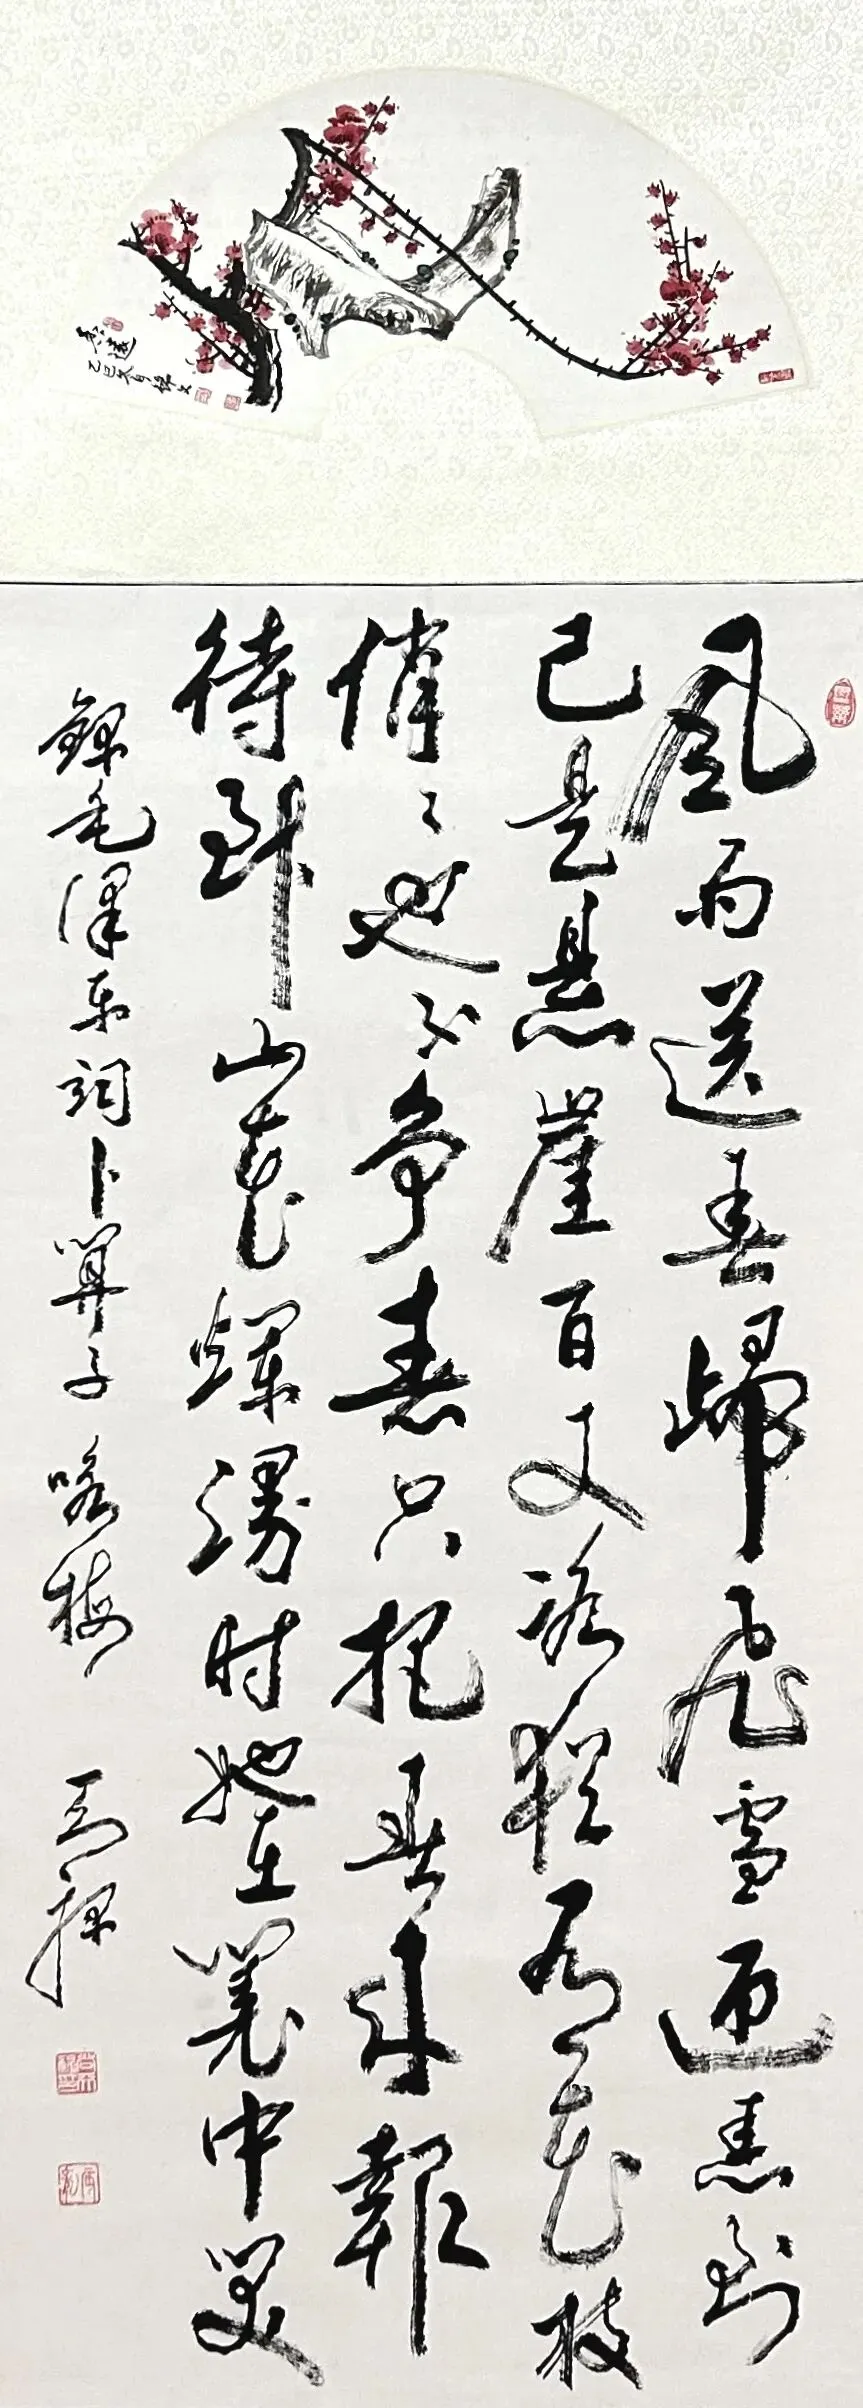 香遠
乙巳春月
風雨送春歸飛雪迎春到
已是悬崖百丈冰猶有花枝
俏々也不争春只把春來報
待到山花爛漫时她在叢中笑
錄毛澤东詞卜算子 咏梅